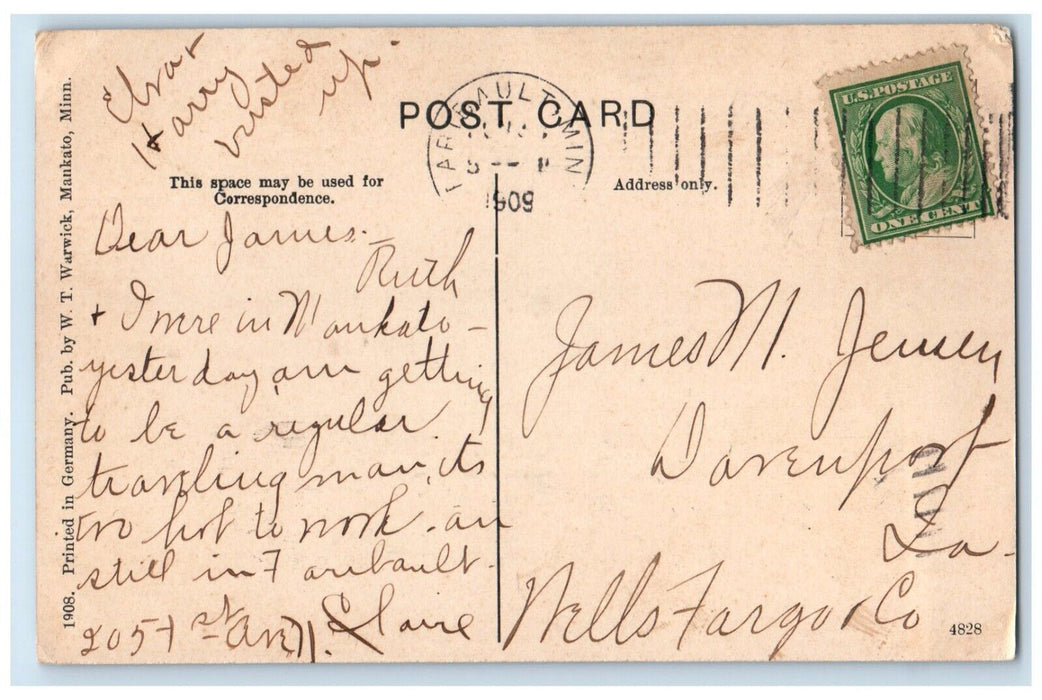 Elva +
Harry
visited
up.
POST CARD
FARIBAULT MIN
1909
U.S. POSTAGE
ONE CENT
This space may be used for
Correspondence.
Address only.
Dear James.—
Ruth
+ I were in Mankato —
yesterday am getting
to be a regular
traveling man, its
too hot to work. am
still in Faribault.
205 – 1st Ave. N. Claire
James M. Jensen
Davenport
Ia.
Wells Fargo & Co
1908. Printed in Germany. Pub. by W. T. Warwick, Mankato, Minn.
4828